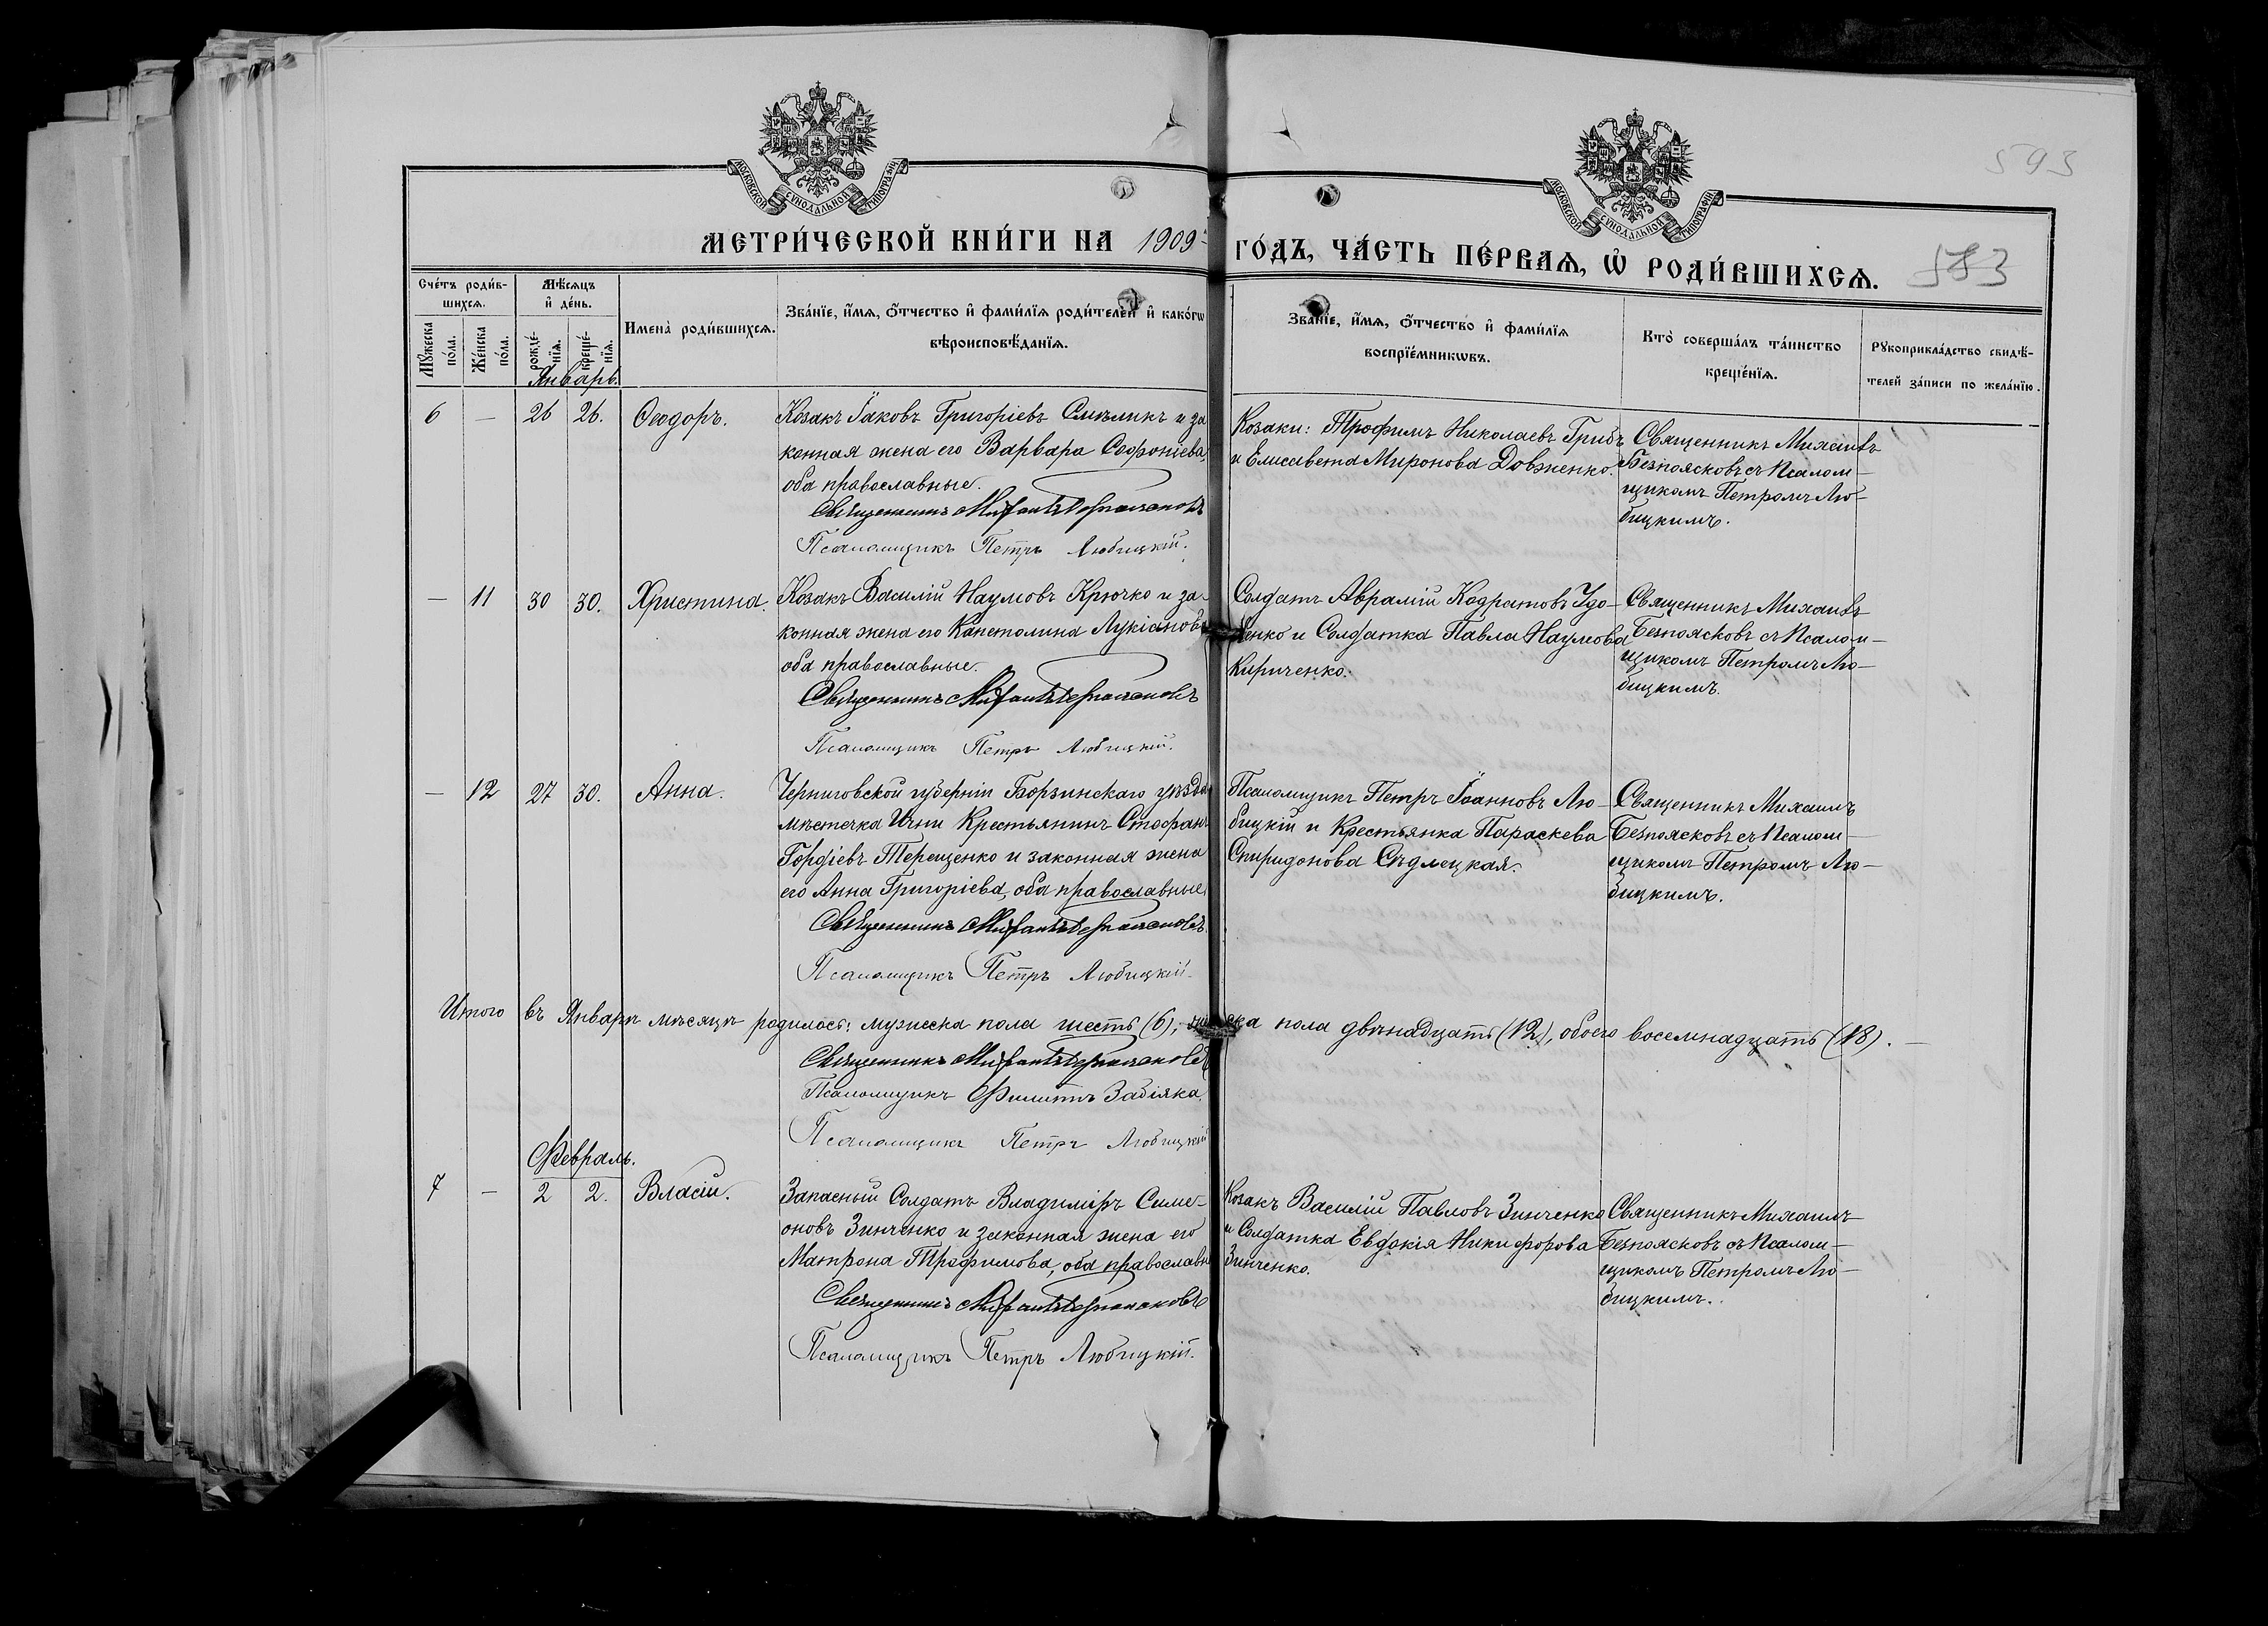 МОСКОВСКОЙ СѴНОДАЛЬНОЙ ТИПОГРАФІИ
МОСКОВСКОЙ СѴНОДАЛЬНОЙ ТИПОГРАФІИ
593
583
МЕТРИ́ЧЕСКОЙ КНИ́ГИ НА 1909 ГО́ДЪ, ЧА́СТЬ ПЕ́РВАѦ, Ѡ҆ РОДИ́ВШИХСѦ.
Сче́тъ роди́в-
шихсѧ.
Мꙋ́жеска по́ла.
Же́нска по́ла.
Мѣ́сѧцъ
и҆ де́нь.
рожде́-нїѧ.
креще́-нїѧ.
Имена̀ роди́вшихсѧ.
Зва́нїе, и҆́мѧ, ѻ҆́тчество и҆ фами́лїѧ роди́телей и҆ како́гѡ
вѣроисповѣ́данїѧ.
Зва́нїе, и҆́мѧ, ѻ҆́тчество и҆ фами́лїѧ
воспрїе́мникѡвъ.
Кто̀ соверша́лъ та́инство
креще́нїѧ.
Рꙋкоприкла́дство свидѣ́-
телей за́писи по жела́нїю.
Январь.
6 — 26 26. Ѳеодоръ.
Козакъ Іаковъ Григоріевъ Смѣликъ и за
конная жена его Варвара Софоніева,
оба православные.
Священникъ Михаилъ Безпоясковъ
Псаломщикъ Петръ Любицкій.
Козаки: Трофимъ Николаевъ Грибъ
и Елисавета Миронова Довженко.
Священникъ Михаилъ
Безпоясковъ съ Псалом-
щикомъ Петромъ Лю-
бицкимъ.
— 11 30 30. Христина.
Козакъ Василій Наумовъ Крючко и за-
конная жена его Капетолина Лукіанова
оба православные.
Священникъ Михаилъ Безпоясковъ
Псаломщикъ Петръ Любицкій.
Солдатъ Аврамій Кодратовъ Удо-
венко и Солдатка Павла Наумова
Кириченко.
Священникъ Михаилъ
Безпоясковъ съ Псалом-
щикомъ Петромъ Лю-
бицкимъ.
— 12 27 30. Анна.
Черниговской губерніи Борзинскаго уѣзда
мѣстечка Ични Крестьянинъ Стефанъ
Гордіевъ Терещенко и законная жена
его Анна Григоріева, оба православные
Священникъ Михаилъ Безпоясковъ
Псаломщикъ Петръ Любицкій.
Псаломщикъ Петръ Іоанновъ Лю-
бицкій и Крестьянка Параскева
Спиридонова Сѣдлецкая.
Священникъ Михаилъ
Безпоясковъ съ Псалом-
щикомъ Петромъ Лю-
бицкимъ.
Итого въ Январѣ мѣсяцѣ родилось: мужеска пола шесть (6), женска пола двѣнадцать (12), обоего восемнадцать (18).
Священникъ Михаилъ Безпоясковъ
Псаломщикъ Филиппъ Забіяка.
Псаломщикъ Петръ Любицкій
Февраль.
7 — 2 2. Власій.
Запасный Солдатъ Владиміръ Симе-
оновъ Зинченко и законная жена его
Матрона Трофимова, оба православн
Священникъ Михаилъ Безпоясковъ
Псаломщикъ Петръ Любицкій.
Козакъ Василій Павловъ Зинченко
и Солдатка Евдокія Никифорова
Зинченко.
Священникъ Михаилъ
Безпоясковъ съ Псалом-
щикомъ Петромъ Лю-
бицкимъ.